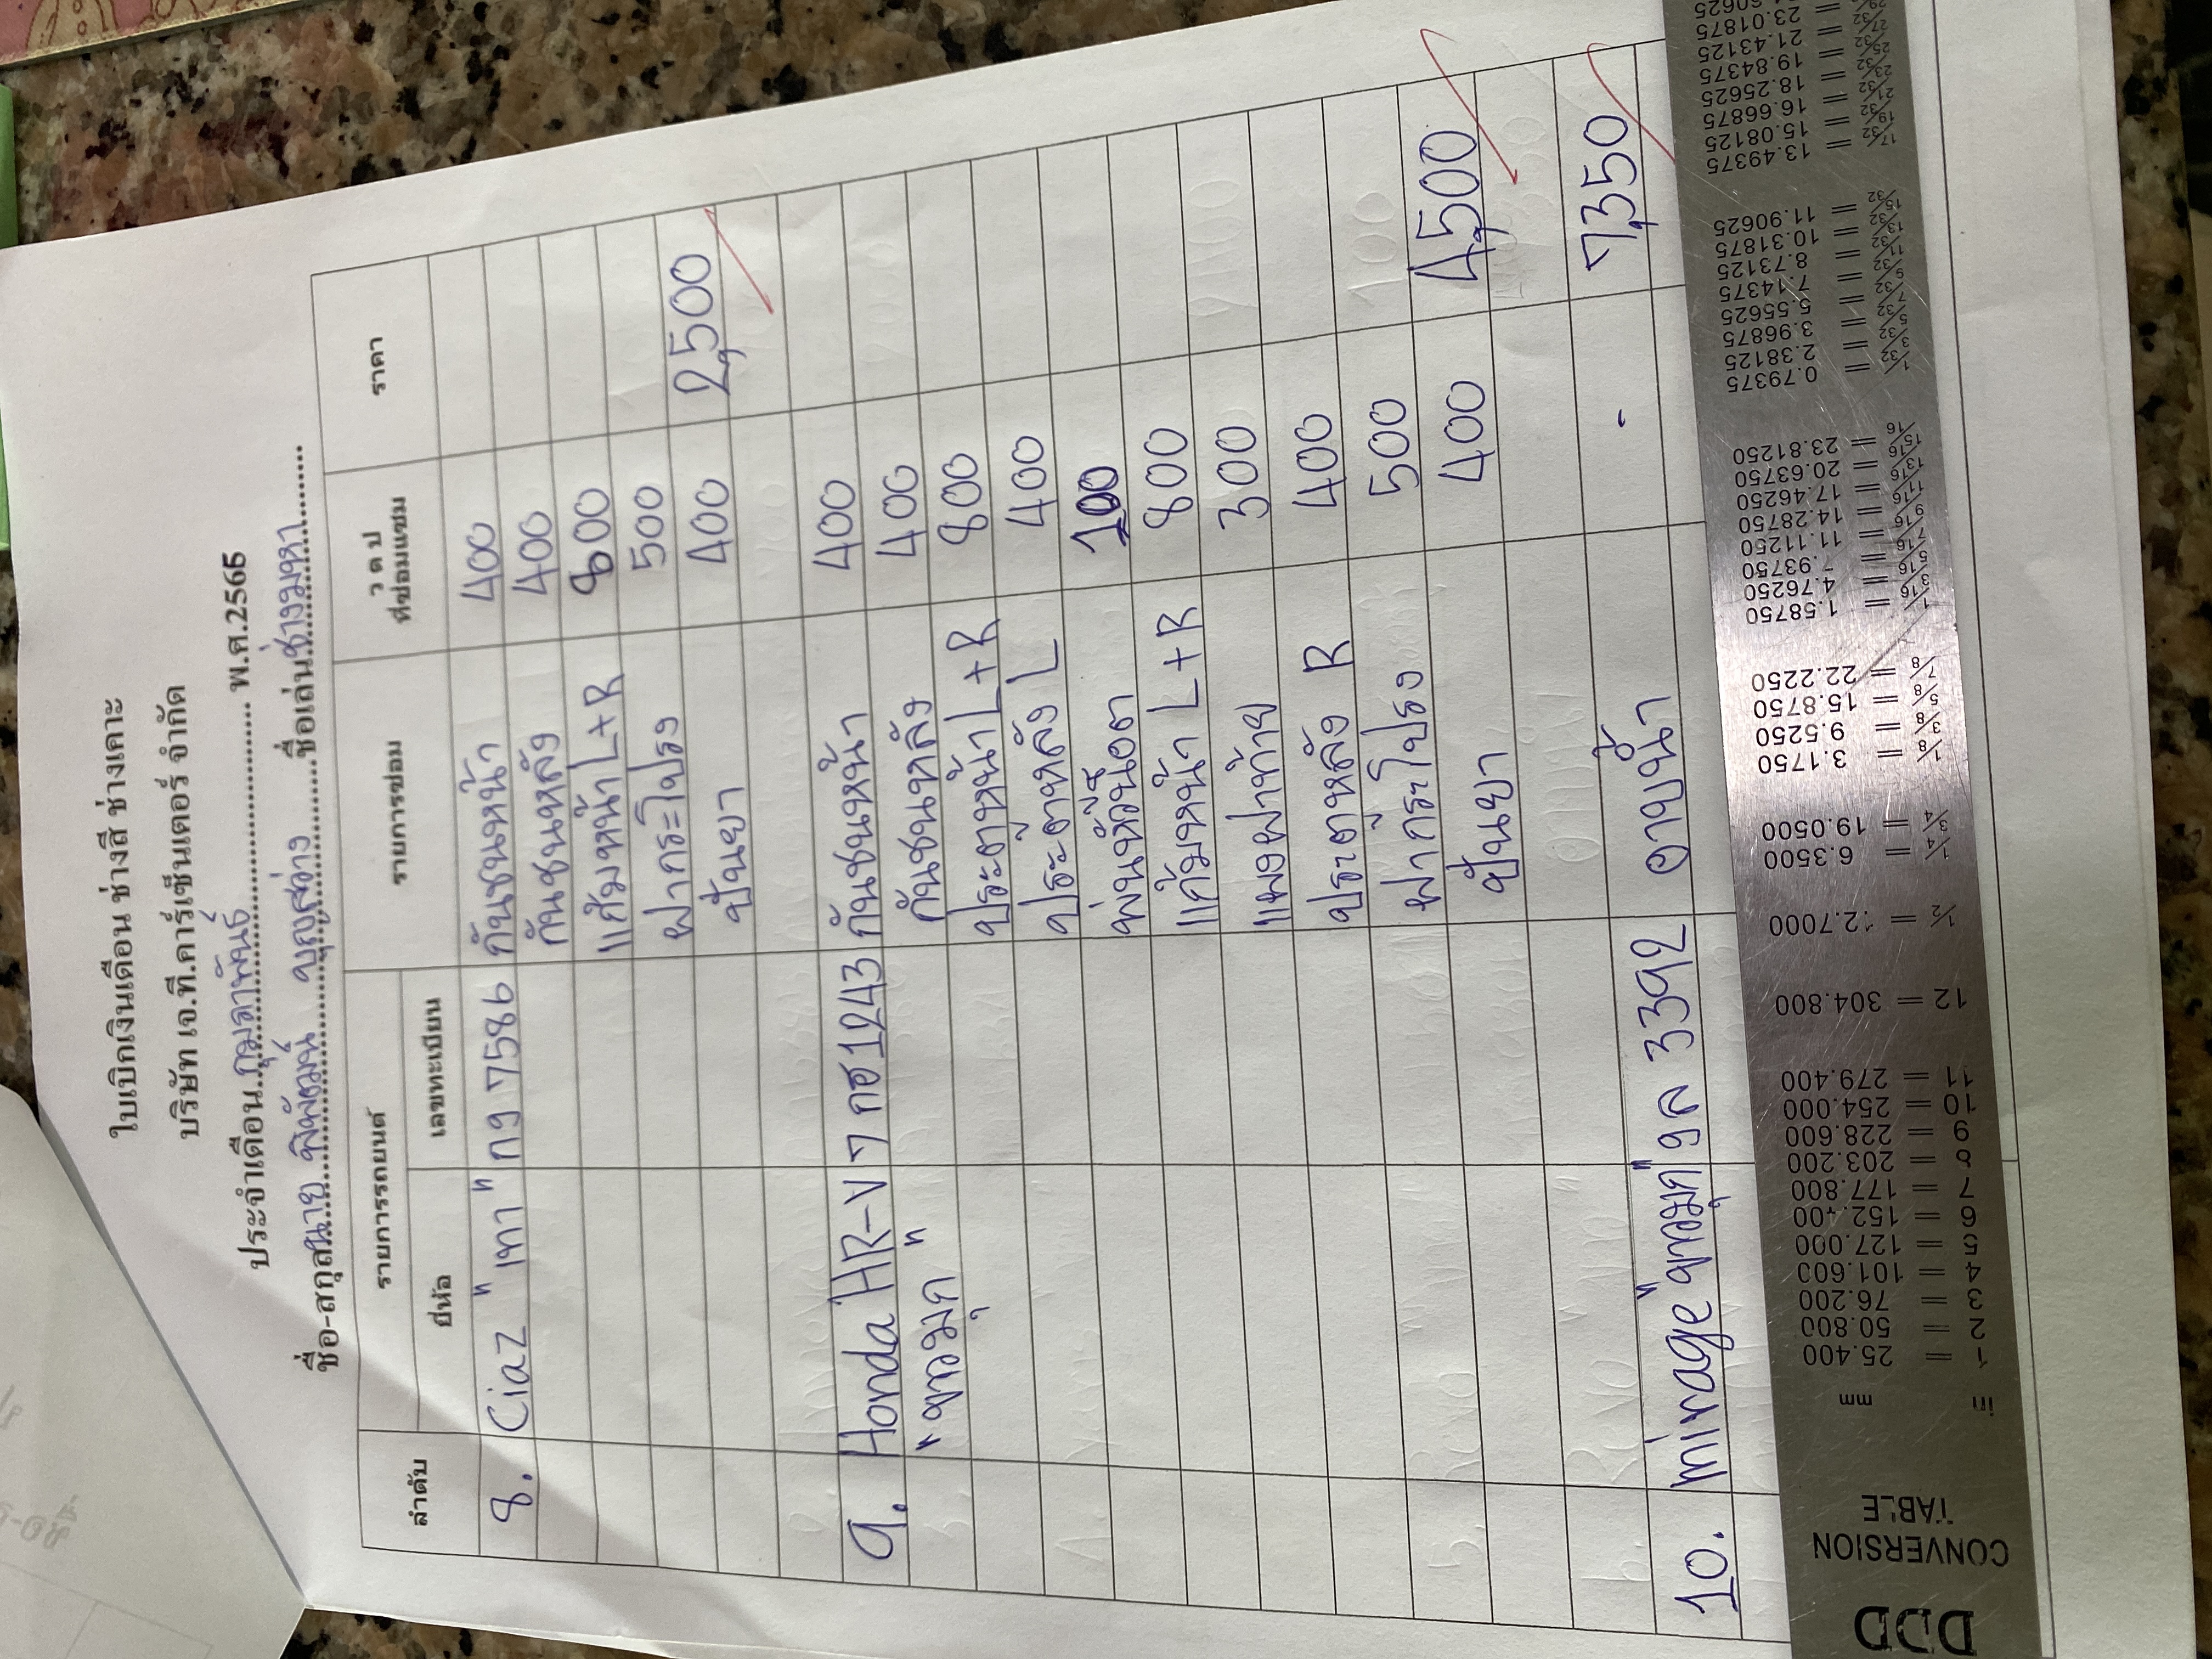 ใบเบิกเงินเดือน ช่างสี ช่างเคาะ
บริษัท เจ.ที.คาร์เซ็นเตอร์ จำกัด
ประจำเดือน กุมภาพันธ์ พ.ศ.2565
ชื่อ-สกุล นาย พิพัฒน์ บุญสว่าง ชื่อเล่น ช่างมหา
ลำดับ รายการรถยนต์ รายการซ่อม ว ด ป ที่ซ่อมแซม ราคา
ยี่ห้อ เลขทะเบียน
8. Ciaz "เทา" กง 7586 กันชนหน้า 400
กันชนหลัง 400
แก้มหน้า L+R 800
ฝากระโปรง 500
ปั่นยา 400 2,500
9. Honda HR-V 7 กฮ 1243 กันชนหน้า 400
"ขาวมุก" กันชนหลัง 400
ประตูหน้า L+R 800
ประตูหลัง L 400
พ่นหัวน็อต 100
แก้มหน้า L+R 800
แผงฝาท้าย 300
ประตูหลัง R 400
ฝากระโปรง 500
ปั่นยา 400 4,500
10. mirage "ขาวมุก" งล 3392 อาบน้ำ - 7,350
DDD
CONVERSION
TABLE
in mm
1 = 25.400
2 = 50.800
3 = 76.200
4 = 101.600
5 = 127.000
6 = 152.400
7 = 177.800
8 = 203.200
9 = 228.600
10 = 254.000
11 = 279.400
12 = 304.800
1/2 = 12.7000
1/4 = 6.3500
3/4 = 19.0500
1/8 = 3.1750
3/8 = 9.5250
5/8 = 15.8750
7/8 = 22.2250
1/16 = 1.58750
3/16 = 4.76250
5/16 = 7.93750
7/16 = 11.11250
9/16 = 14.28750
11/16 = 17.46250
13/16 = 20.63750
15/16 = 23.81250
1/32 = 0.79375
3/32 = 2.38125
5/32 = 3.96875
7/32 = 5.55625
9/32 = 7.14375
11/32 = 8.73125
13/32 = 10.31875
15/32 = 11.90625
17/32 = 13.49375
19/32 = 15.08125
21/32 = 16.66875
23/32 = 18.25625
25/32 = 19.84375
27/32 = 21.43125
23.01875